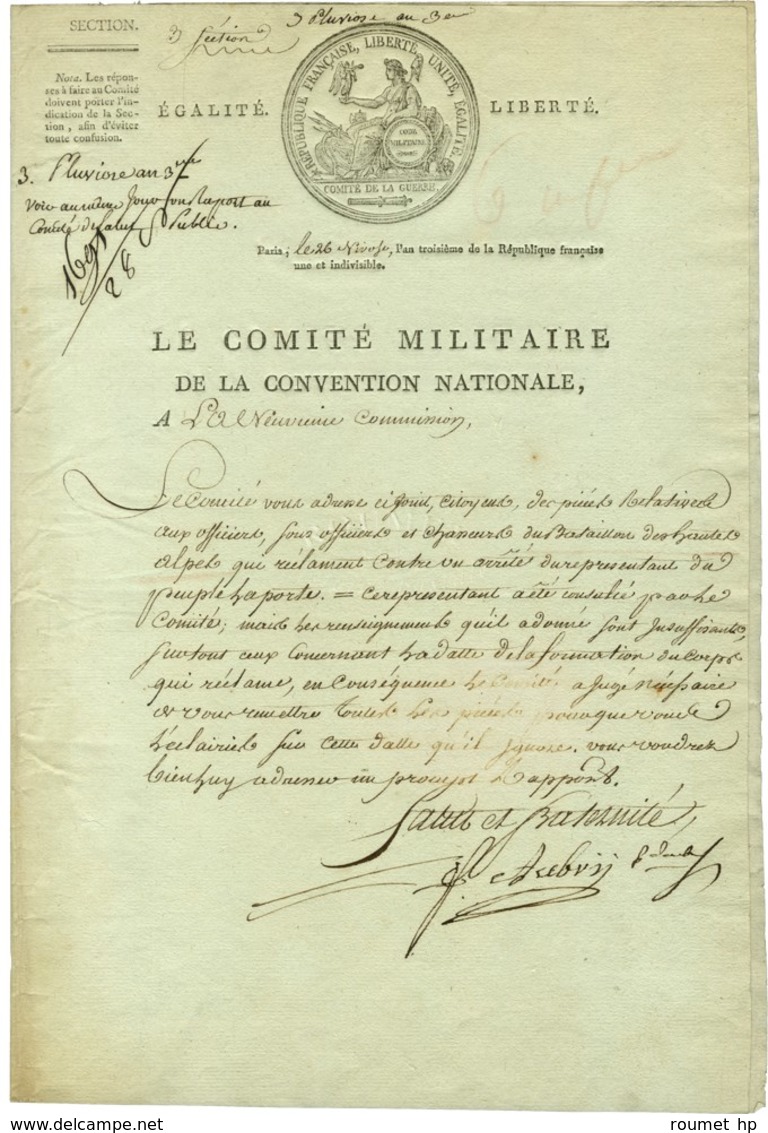 SECTION.
3 Section
3 Pluviose an 3e
Nota. Les répon-
ses à faire au Comité
doivent porter l'in-
dication de la Sec-
tion, afin d'éviter
toute confusion.
ÉGALITÉ.
RÉPUBLIQUE FRANÇAISE, LIBERTÉ, UNITÉ, ÉGALITÉ.
CODE
MILITAIRE
COMITÉ DE LA GUERRE.
LIBERTÉ.
3. Pluviose an 3
Voir au même jour son Raport au
Comité de Salut Public.
1691
28
Paris, le 26 Nivose, l'an troisième de la République française
une et indivisible.
LE COMITÉ MILITAIRE
DE LA CONVENTION NATIONALE,
A La Neuvieme Commission,
Le Comité vous adresse ci joint, citoyens, des piéces Relatives
aux officiers, sous officiers et chasseurs du Bataillon des hautes
alpes qui réclament contre un arrêté du representant du
peuple Laporte. = ce representant a été consulté par le
Comité; mais les renseignements qu'il a donné sont Insuffisants,
surtout ceux concernant la datte de la formation du Corps
qui réclame, en conséquence le Comité a Jugé nécessaire
de vous remettre toutes les piéces pour que vous
l'éclairies sur cette datte qu'il Ignore. vous voudrez
bien luy adresser un proujet de rapport.
Salut et Fraternité,
Aubry
roumet hp